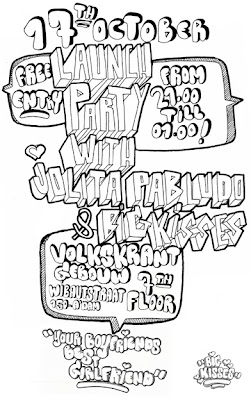 17TH OCTOBER
FREE
ENTRY
LAUNCH
PARTY
WITH
FROM
21.00
TILL
01.00!
JOLITA PABLUDO
& BIG KISSES
VOLKSKRANT
GEBOUW 7TH
WIBAUTSTRAAT FLOOR
"YOUR BOYFRIENDS
BEST
GIRLFRIEND"
"BIG
KISSES"